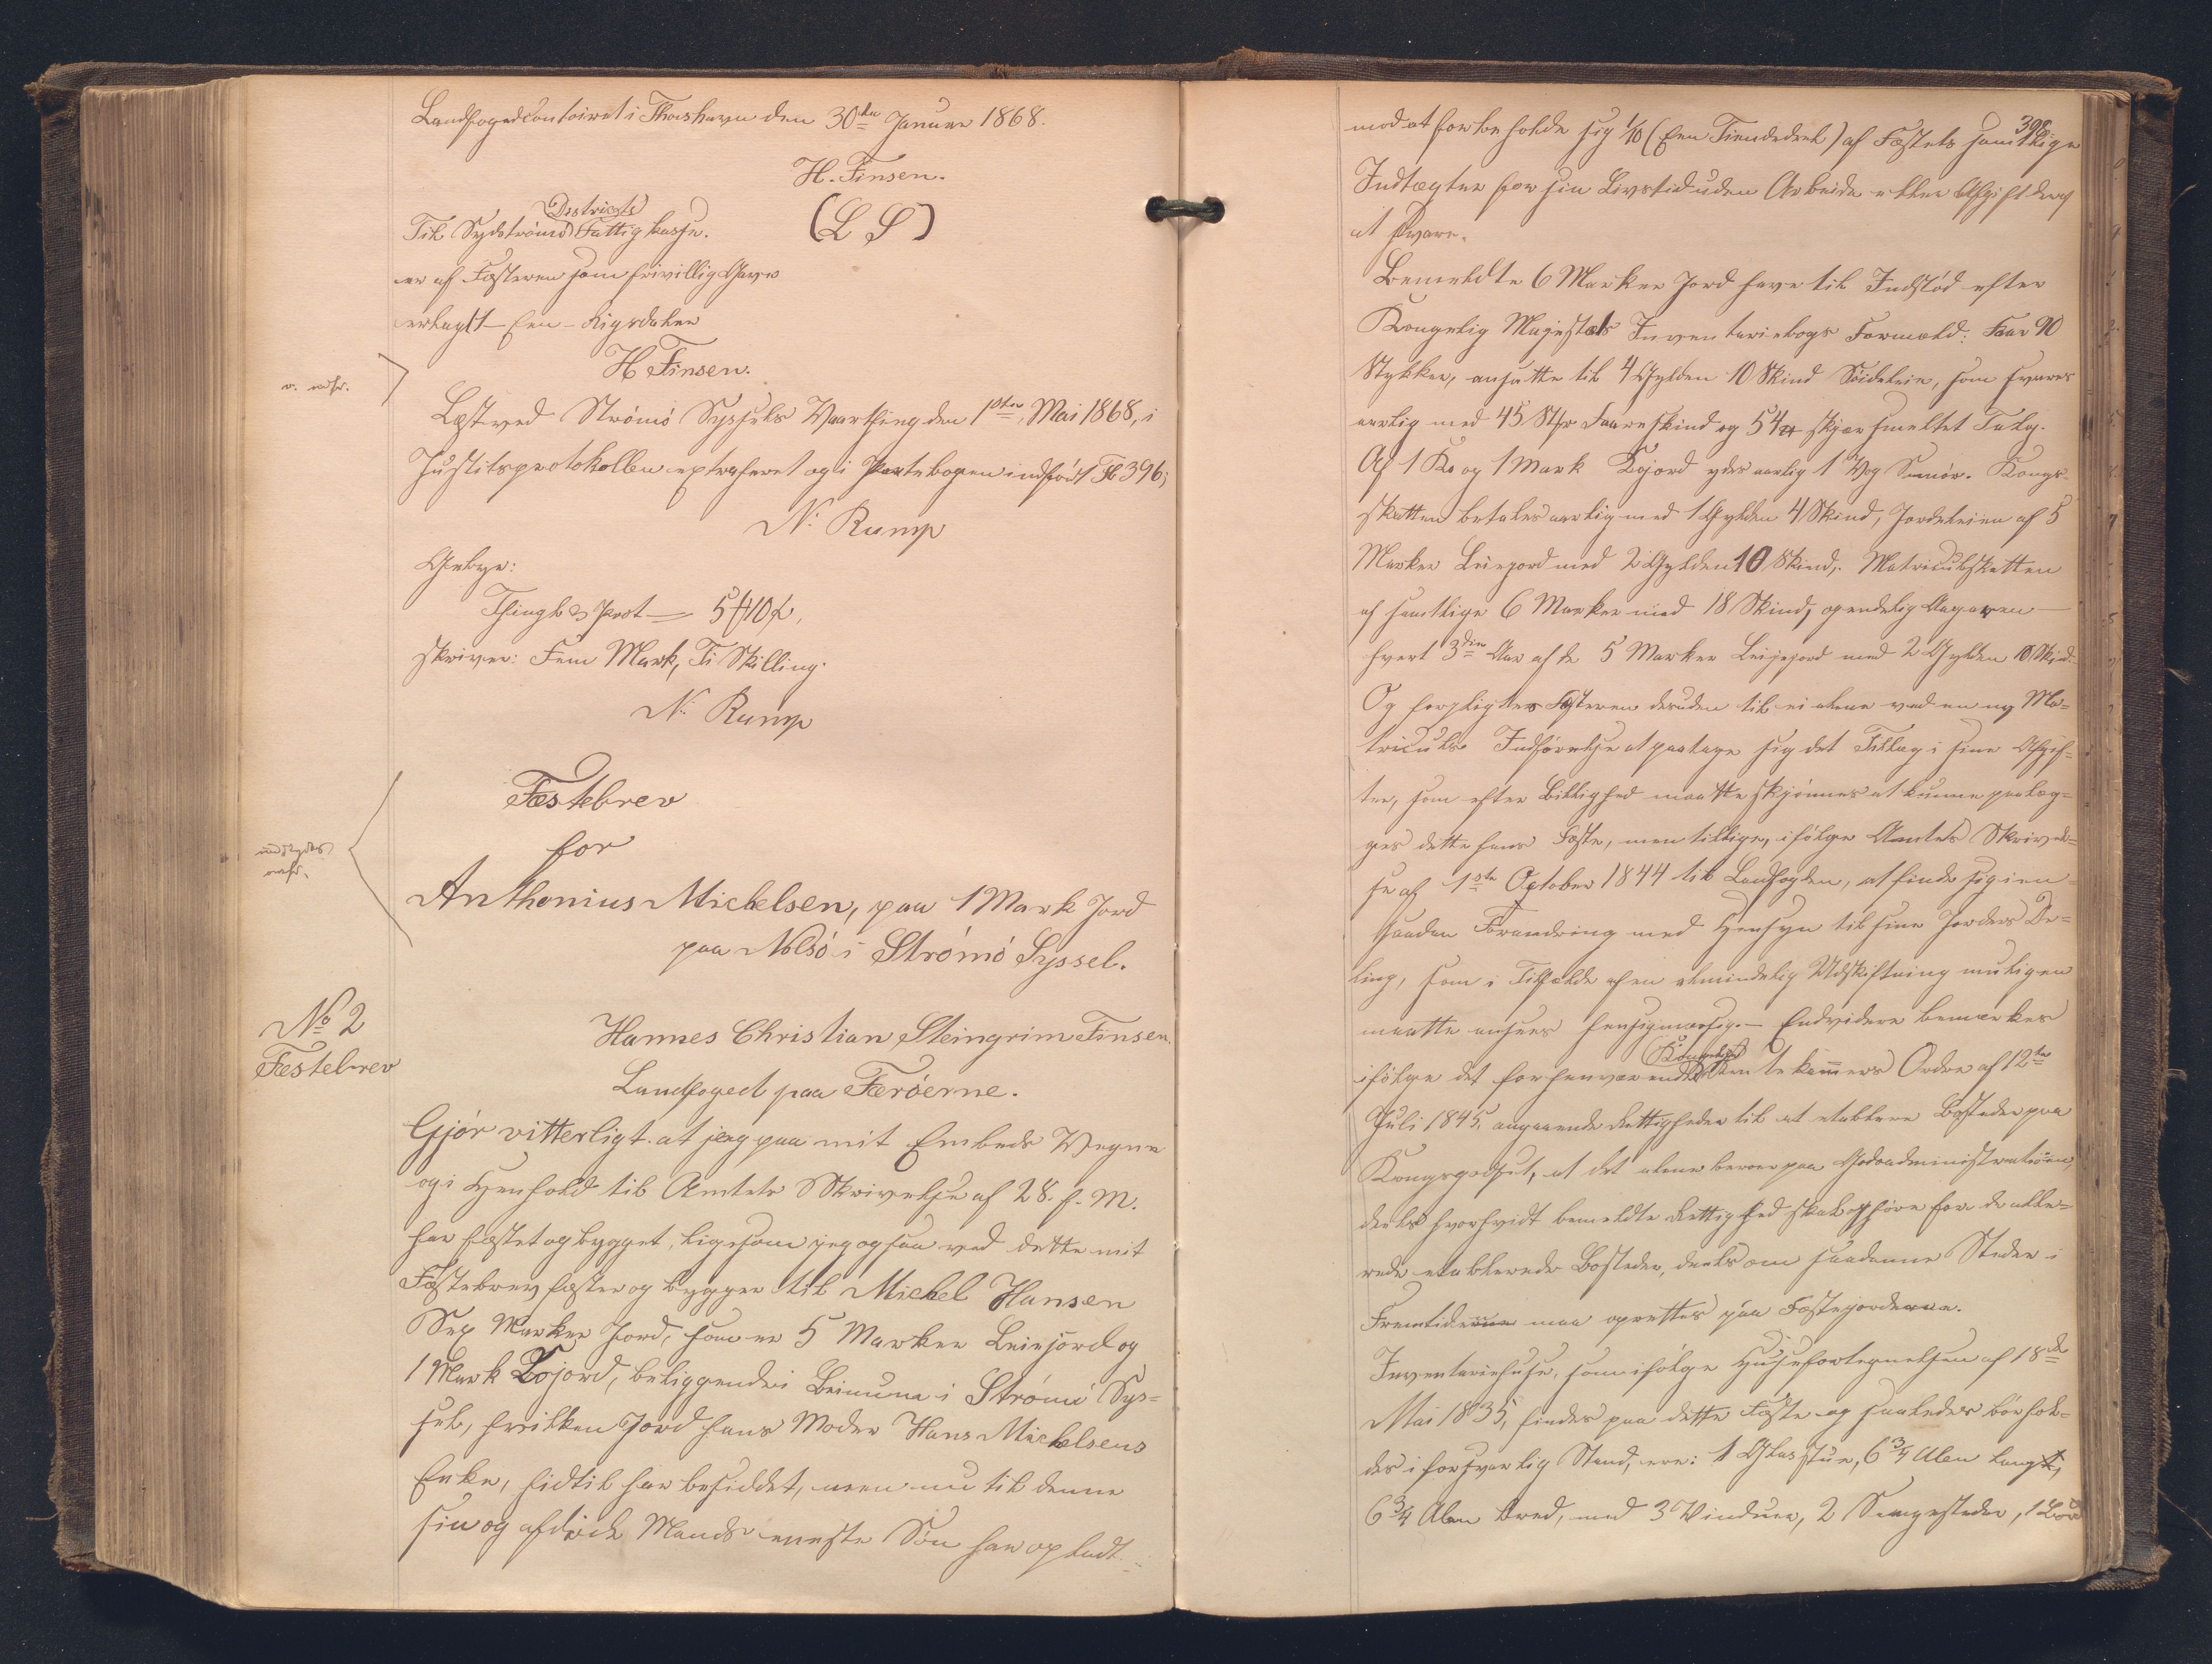 Landfogedcontoiret i Thorshavn den 30te Januar 1868.
H. Finsen.
(L S)
Districts
Til Sydströmö Fattigkasse.
er af Fæsteren som frivillig Gave
erlagt – Een – Rigsdaler
H Finsen.
Læst ved Strömö Syssels Vaarthing den 1ste Mai 1868, i
Justitsprotokollen extraheret og i Pantebogen indført Fol 396;
N. Rump
Gebyr:
Thingl & Prot = 5 10
skriver: Fem Mark, Ti Skilling.
N. Rump
Fæstebrev
for
Anthonius Michelsen, paa 1 Mark Jord
paa Nolsö i Strömö Syssel.
No 2
Fæstebrev
Hannes Christian Steingrim Finsen.
Landfoged paa Færöerne.
Gjör vitterligt: at jeg paa mit Embeds Vegne
og i Henhold til Amtets Skrivelse af 28. f. M.
har fæstet og bygget, ligesom jeg ogsaa ved dette mit
Fæstebrev fæster og bygger til Michel Hansen
Sex Marker Jord, som er 5 Marker Leiejord og
1 Mark Kojord, beliggende i Leinum i Strömö Sys=
sel, hvilken Jord hans Moder Hans Michelsens
Enke, hidtil har besiddet, men nu til denne
sin og afdöde Mands eneste Sön har opladt
398
mod at forbeholde sig 1/10 (Een Tiendedeel) af Fæstets samtlige
Indtægter for sin Livstid uden Arbeide eller Afgift deraf
at svare.
Bemeldte 6 Marker Jord have til Indstöd efter
Kongelig Majestæts Inventariebogs Formeld: Faar 90
Stykker, ansatte til 4 Gylden 10 Skind Söideleie, som svares
aarlig med 45 Stkr Faareskind og 54 skjær smeltet Talg.
Af 1 Ko og 1 Mark Kojord ydes aarlig 1 Vog Smör. Kongs=
skatten betales aarlig med 1 Gylden 4 Skind, Jordeleien af 5
Marker Leiejord med 2 Gylden 10 Skind,. Matriculskatten
af samtlige 6 Marker med 18 Skind, og endelig Aagaven
hvert 3die Aar af de 5 Marker Leiejord med 2 Gylden 10 Skind.
Og forpligtes Fæsteren desuden til ei alene ved en ny Ma=
triculs Indförelse at paatage sig det Tillæg i sine Afgif=
ter, som efter Billighed maatte skjönnes at kunne paalæg=
ges dette hans Fæste, men tillige, ifölge Amtets Skrivel=
se af 1ste October 1844 til Landfogden, at finde sig i en
saadan Forandring med Hensyn til sine Jorders De=
ling, som i Tilfælde af en almindelig Udskiftning muligen
maatte ansees hensigtmæssig. – Endvidere bemærkes
Kongelige
ifölge det forhenværende Rentekammers Ordre af 12te
Juli 1845, angaaende Rettigheden til at etablere Bosteder paa
Kongsgodset, at det alene beroer paa Godsadministrationen,
deels hvorvidt bemeldte Rettighed skal ophöre for de alle=
rede etablerede Bosteder, deels om saadanne Steder i
Fremtiden maa oprettes paa Fæstejorderne.
Inventariehuse, som ifölge Huusefortegnelsen af 18de
Mai 1835, findes paa dette Fæste og saaledes bör hol=
des i forsvarlig Stand, ere: 1 Glasstue, 6 3/4 Alen lang,
6 3/4 Alen bred, med 3 Vinduer, 2 Sengesteder, 1 Bord